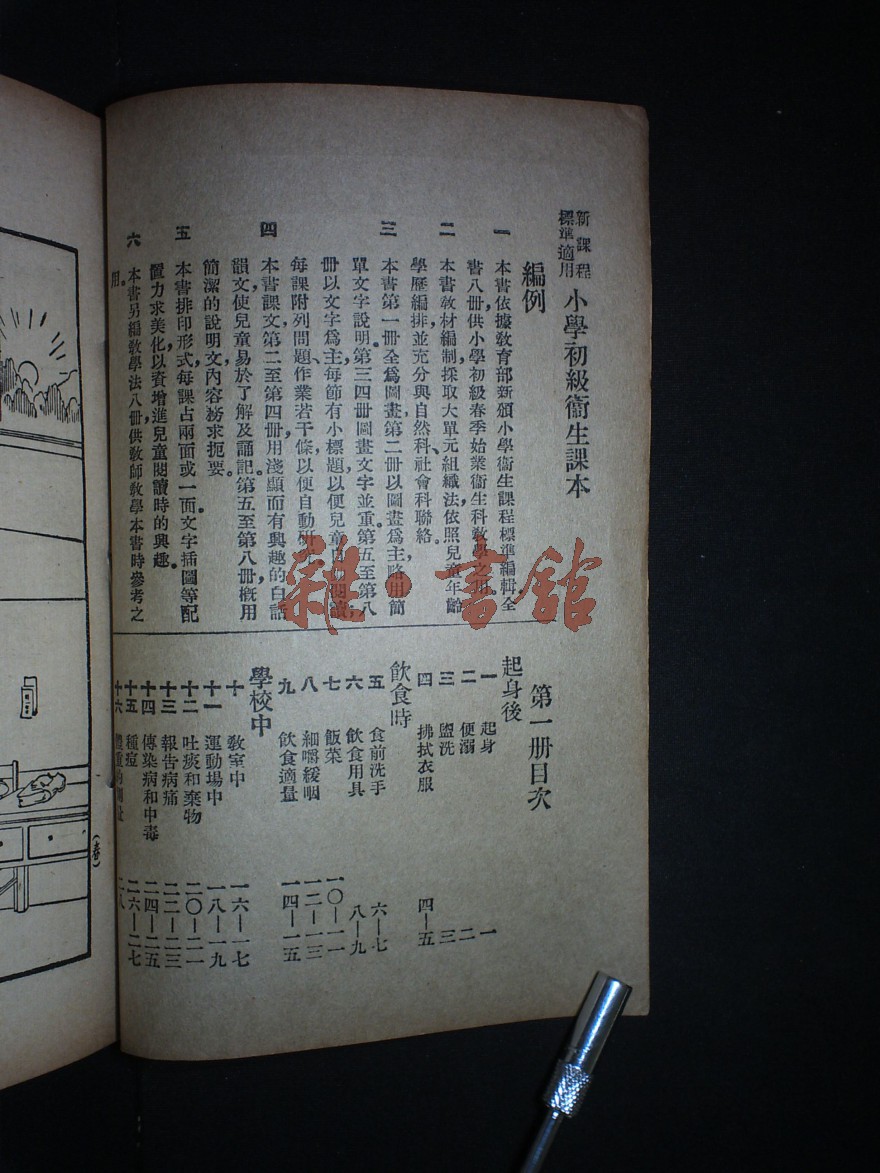 新課程標準適用 小學初級衞生課本
編例
一 本書依據教育部新頒小學衞生課程標準編輯,全
書八册,供小學初級春季始業衞生科教學之用。
二 本書教材編制採取大單元組織法,依照兒童年齡
學歷編排,並充分與自然科、社會科聯絡。
三 本書第一册全爲圖畫,第二册以圖畫爲主,略用簡
單文字說明。第三四册圖畫文字並重。第五至第八
册以文字爲主,每節有小標題,以便兒童自動閱讀;
每課附列問題、作業若干條,以便自動研
四 本書課文第二至第四册用淺顯而有興趣的白話
韻文,使兒童易於了解及誦記。第五至第八册,槪用
簡潔的說明文,內容務求扼要。
五 本書排印形式,每課占兩面或一面,文字插圖等配
置力求美化,以資增進兒童閱讀時的興趣。
六 本書另編教學法八册,供教師教學本書時參考之
用。
第一册目次
起身後
一 起身 一
二 便溺 二
三 盥洗 三
四 拂拭衣服 四—五
飲食時
五 食前洗手 六—七
六 飲食用具 八—九
七 飯菜 一〇—一一
八 細嚼緩咽 一二—一三
九 飲食適量 一四—一五
學校中
十 教室中 一六—一七
十一 運動場中 一八—一九
十二 吐痰和棄物 二〇—二一
十三 報告病痛 二二—二三
十四 傳染病和中毒 二四—二五
十五 種痘 二六—二七
十六 體重的 二八
(春)
雜·書舘